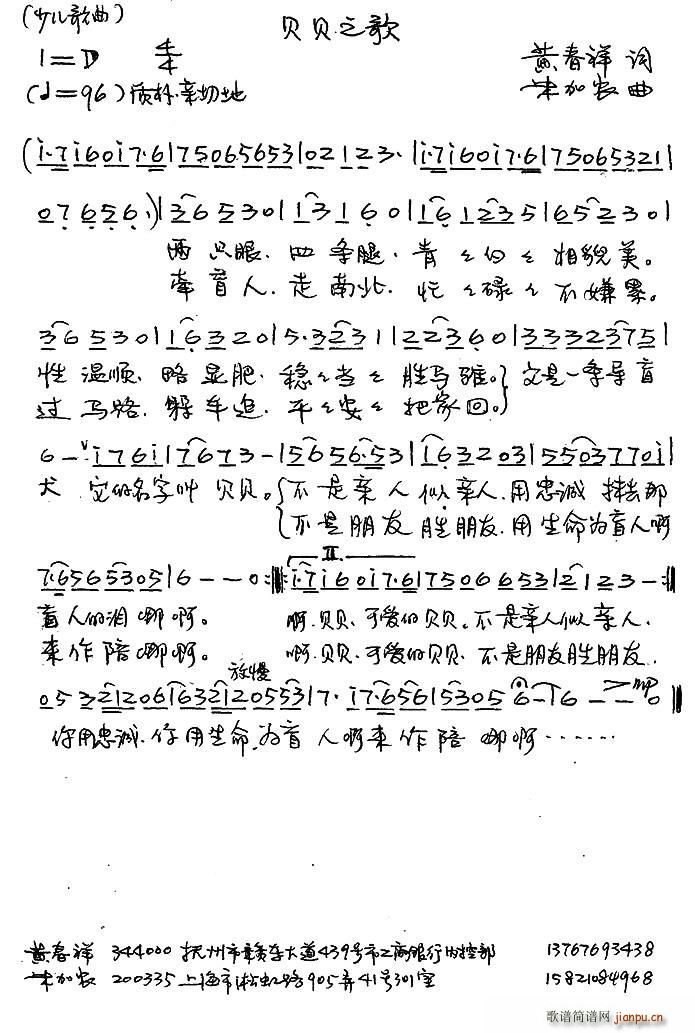 (少儿歌曲)
贝贝之歌
1=D 4/4
黄春祥 词
(♩=96) 质朴.亲切地
朱加农 曲
(i·7i60i7·6|75065653|02123·|i·7i60i7·6|75065321|
07656·)|36530|13160|161235|65230|
两只眼. 四条腿. 青々白々相貌美。
牵盲人. 走南北. 忙々碌々不嫌累。
36530|16320|5·3231|22360|3332375|
性温顺. 略显肥. 稳々当々胜马骓。 它是一条导盲
过马路. 躲车追. 平々安々把家回。
6-i76i|7673-|5656·53|163203|5503770i|
犬 它的名字叫 贝贝。 不是亲人似亲人. 用忠诚 抹去那
不是朋友胜朋友. 用生命为盲人啊
7·6565305|6---0:|i·7i60i7·6|7506653|2123-:|
II.
盲人的泪哪啊。 啊.贝贝. 可爱的贝贝. 不是亲人似亲人.
来作陪哪啊。 啊.贝贝. 可爱的贝贝. 不是朋友胜朋友.
放慢
053212061632120553|7·i7·656153056-|6---0|
你用忠诚. 你用生命. 为盲人啊来作陪哪啊……
黄春祥 344000 抚州市赣东大道439号市工商银行内控部 13767693438
朱加农 200335 上海市淞虹路905弄41号301室 15821084968
歌谱简谱网
jianpu.cn